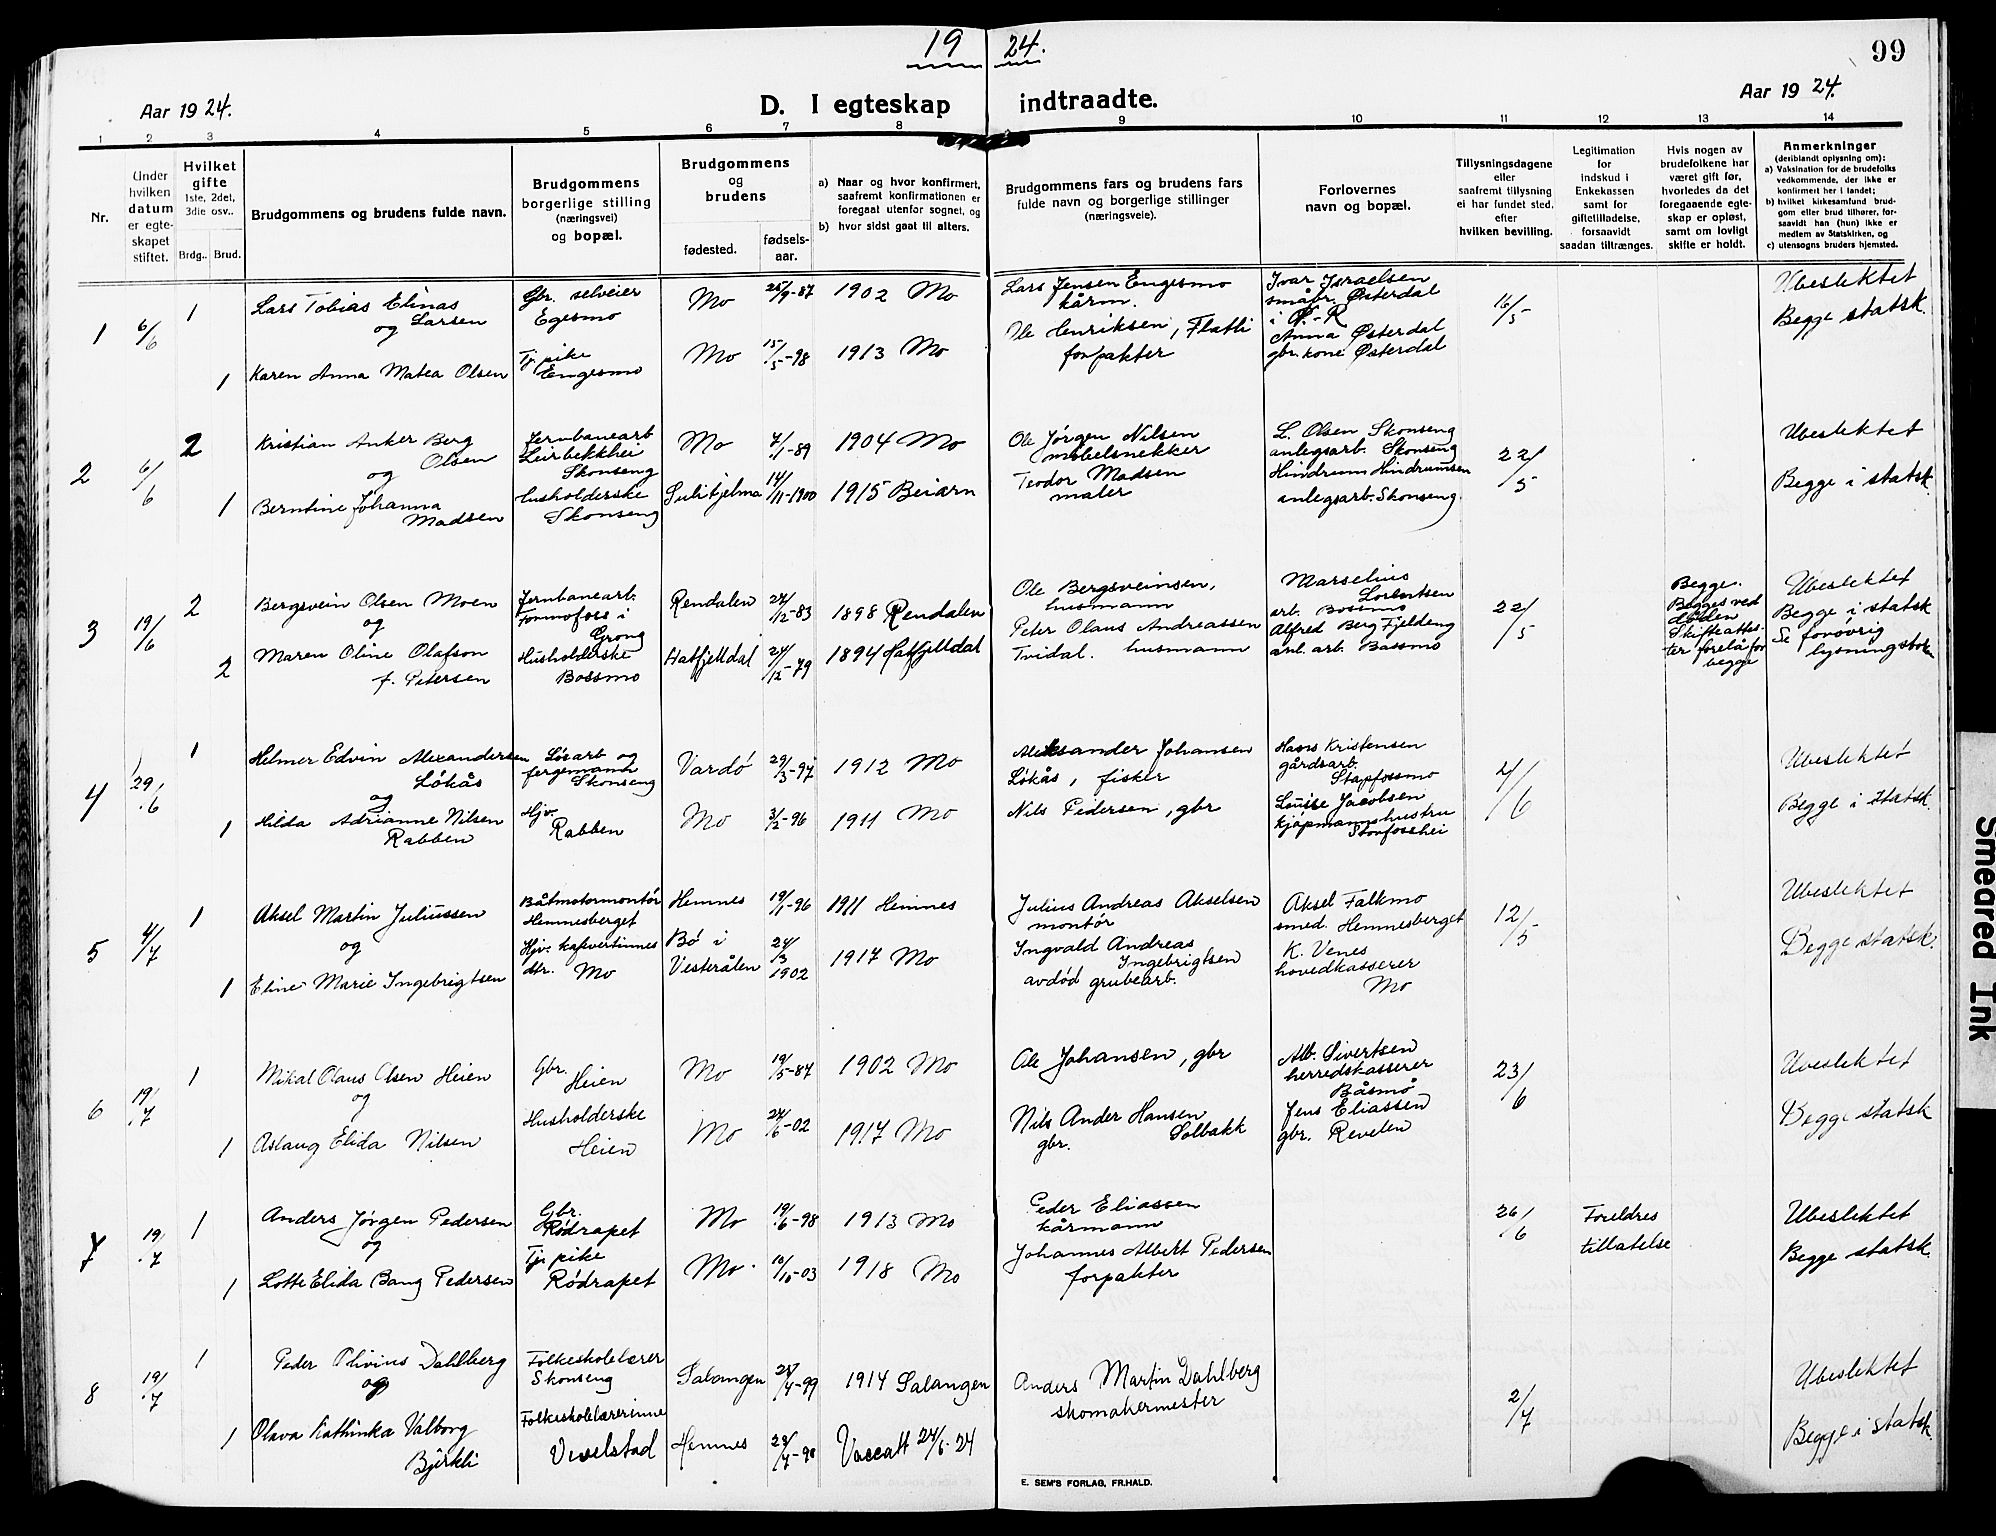 19 24.
99
Aar 19 24.
D. I egteskap indtraadte.
Aar 19 24.
1 2 3 4 5 6 7 8 9 10 11 12 13 14
Nr.
Under hvilken datum er egteskapet stiftet.
Hvilket gifte 1ste, 2det, 3die osv..
Brdg.. Brud.
Brudgommens og brudens fulde navn.
Brudgommens borgerlige stilling (næringsvei) og bopæl.
Brudgommens og brudens
fødested. fødsels-aar.
a) Naar og hvor konfirmert, saafremt konfirmationen er foregaat utenfor sognet, og
b) hvor sidst gaat til alters.
Brudgommens fars og brudens fars fulde navn og borgerlige stillinger (næringsveie).
Forlovernes navn og bopæl.
Tillysningsdagene eller saafremt tillysning ei har fundet sted, efter hvilken bevilling.
Legitimation for indskud i Enkekassen samt for giftetilladelse, forsaavidt saadan tiltrænges.
Hvis nogen av brudefolkene har været gift før, hvorledes da det foregaaende egteskap er opløst, samt om lovligt skifte er holdt.
Anmerkninger
(deriblandt oplysning om):
a) Vaksination for de brudefolks vedkommende, der ikke er konfirmert her i landet;
b) hvilket kirkesamfund brudgom eller brud tilhører, forsaavidt han (hun) ikke er medlem av Statskirken, og
c) utensogns bruders hjemsted.
1 6/6 1 Lars Tobias Elinas og Larsen Gbr. selveier Egesmo Mo 25/9-87 1902 Mo Lars Jensen Engesmo kårm. Ivar Israelsen småbr. Østerdal i Ø.-R 16/5 Ubeslektet
1 Karen Anna Matea Olsen Tj. pike Engesmo Mo 15/5-98 1913 Mo Ole Henriksen, Flatli forpakter Anna Østerdal gbr. kone Østerdal Begge statsk.
2 6/6 2 Kristian Anker Berg Olsen og Jernbanearb Leirbekkhei Skonseng Mo 7/1-89 1904 Mo Ole Jørgen Nilsen møbelsnekker L. Olsen Skonseng anlegsarb. Skonseng 22/5 Ubeslektet
1 Berntine Johanna Madsen Husholderske Skonseng Sulitjelma 14/11-1900 1915 Beiarn Teodor Madsen maler Hindrum Hindrumsen anlegsarb. Skonseng. Begge i statsk.
3 19/6 2 Bergsvein Olsen Moen og Jernbanearb. Formofoss i Grong Rendalen 27/12-83 1898 Rendalen Ole Bergsveinsen, husmann Marselius Lorentsen arb. Bossmo 22/5 Begge. Begges ved døden Skifteattester forelå for begge Ubeslektet
2 Maren Oline Olafson f. Petersen Husholderske Bossmo Hatfjelldal 27/12-79 1894 Hatfjelldal Peter Olaus Andreassen Tvidal. husmann Alfred Berg Fjeldeng anl. arb. Bossmo Begge i statsk Se forøvrig lysningsboken
4 29/6 1 Helmer Edvin Alexandersen Løkås og Løsarb og fergemann Skonseng Vardö 29/3-97 1912 Mo Aleksander Johansen Løkås, fisker Hans Kristensen gårdsarb. Stapfossmo 4/6 Ubeslektet
1 Hilda Adrianne Nilsen Rabben Hjv. Rabben Mo 3/2-96 1911 Mo Nils Pedersen, gbr Louise Jacobsen kjøpmannshustru Storfosshei Begge i statsk.
5 4/7 1 Aksel Martin Juliussen og Båtmotormontør Hemnesberget Hemnes 19/1-96 1911 Hemnes Julius Andreas Akselsen montør Aksel Falkmo smed. Hemnesberget 12/5 Ubeslektet
1 Eline Marie Ingebrigtsen Hjv. kafevertinnes dtr. Mo Bø i Vesterålen 24/3 1902 1917 Mo Ingvald Andreas Ingebrigtsen avdød grubearb. K. Venes hovedkasserer Mo Begge statsk.
6 19/7 1 Mikal Olaus Olsen Heien og Gbr. Heien Mo 19/5-87 1902 Mo Ole Johansen, gbr Alb. Sivertsen herredskasserer Båsmo 23/6 Ubeslektet
1 Aslaug Elida Nilsen Husholderske Heien Mo 27/6-02 1917 Mo Nils Ander Hansen gbr. Solbakk Jens Eliassen gbr. Revelen Begge statsk
7 19/7 1 Anders Jørgen Pedersen og Gbr. Rødrapet Mo 19/6-98 1913 Mo Peder Eliassen kårmann 26/6 Foreldres tillatelse Ubeslektet
1 Lotte Elida Bang Pedersen Tj. pike Rødrapet Mo. 10/10-03 1918 Mo Johannes Albert Pedersen forpakter Begge statsk.
8 19/7 1 Peder Olivius Dahlberg og Folkeskolelærer Skonseng Salangen 27/4-99 1914 Salangen Anders Martin Dahlberg skomakermester 2/7 Ubeslektet
1 Olava Kathinka Valborg Bjerkli Folkeskolelærerinne Hemnes Begge i statsk.
E. SEM'S FORLAG, FR.HALD.
Smeared Ink